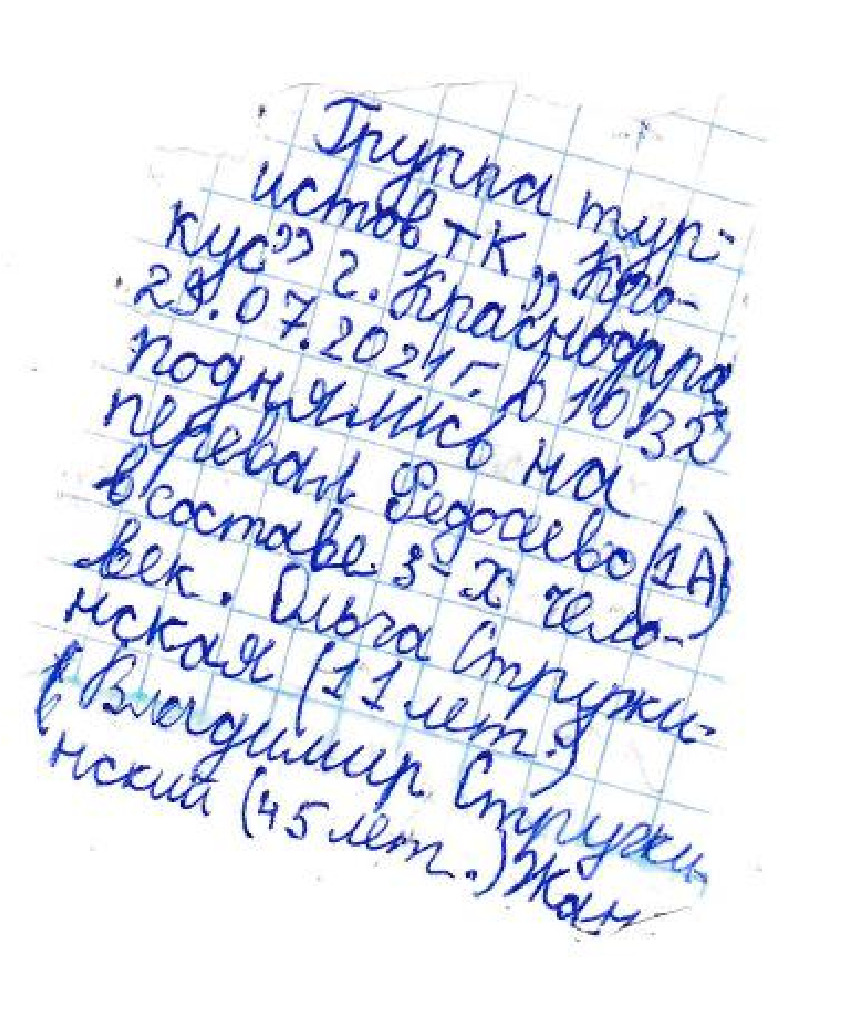 Группа тур-
истов тК „Кро-
кус” г. Краснодара
29.07.2021г. в 10:32
поднялись на
перевал Федосеева (1А)
в составе 3-х чело-
век. Ольга Стружи-
нская (11 лет.)
Владимир Стружи-
нский (45 лет.) Жан